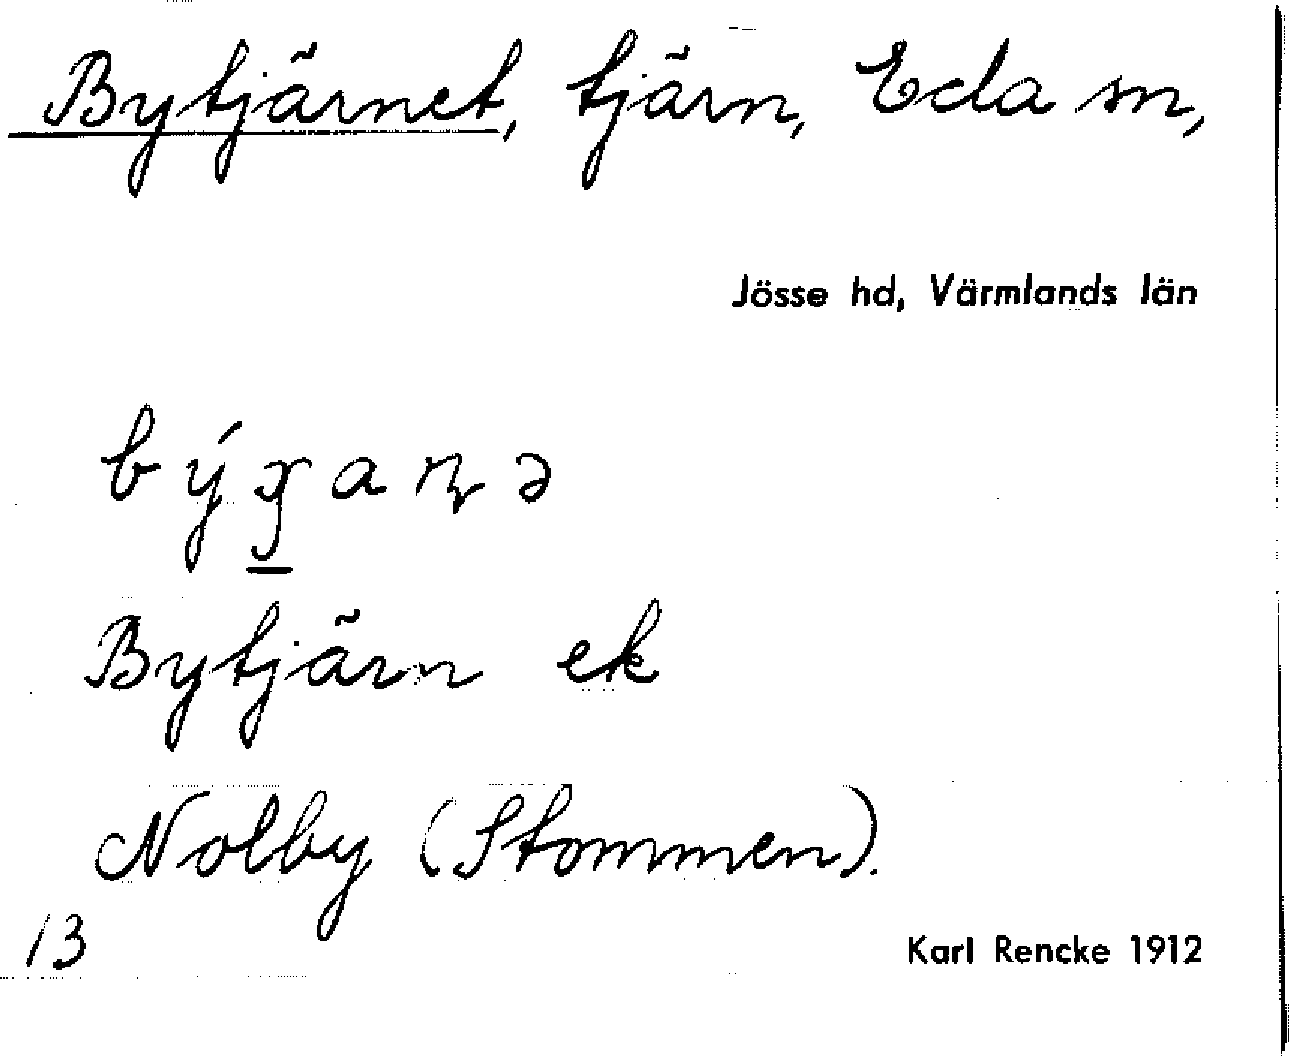 Bytjärnet, tjärn, Eda sn,
Jösse hd, Värmlands län
Bytjärn ek
Nolby (Stommen).
13
Karl Rencke 1912